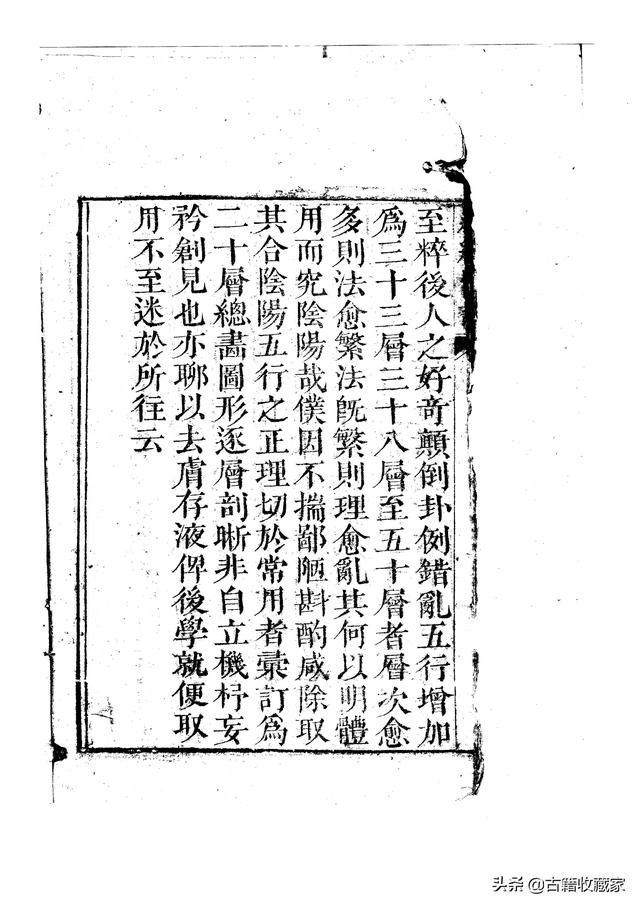 至粹後人之好奇顛倒卦例錯亂五行增加
爲三十三層三十八層至五十層者層次愈
多則法愈繁法旣繁則理愈亂其何以明體
用而究陰陽哉僕因不揣鄙陋斟酌咸除取
其合陰陽五行之正理切於常用者彙訂爲
二十層總畵圖形逐層剖晰非自立機杼妄
矜創見也亦聊以去膚存液俾後學就便取
用不至迷於所往云
头条 @古籍收藏家